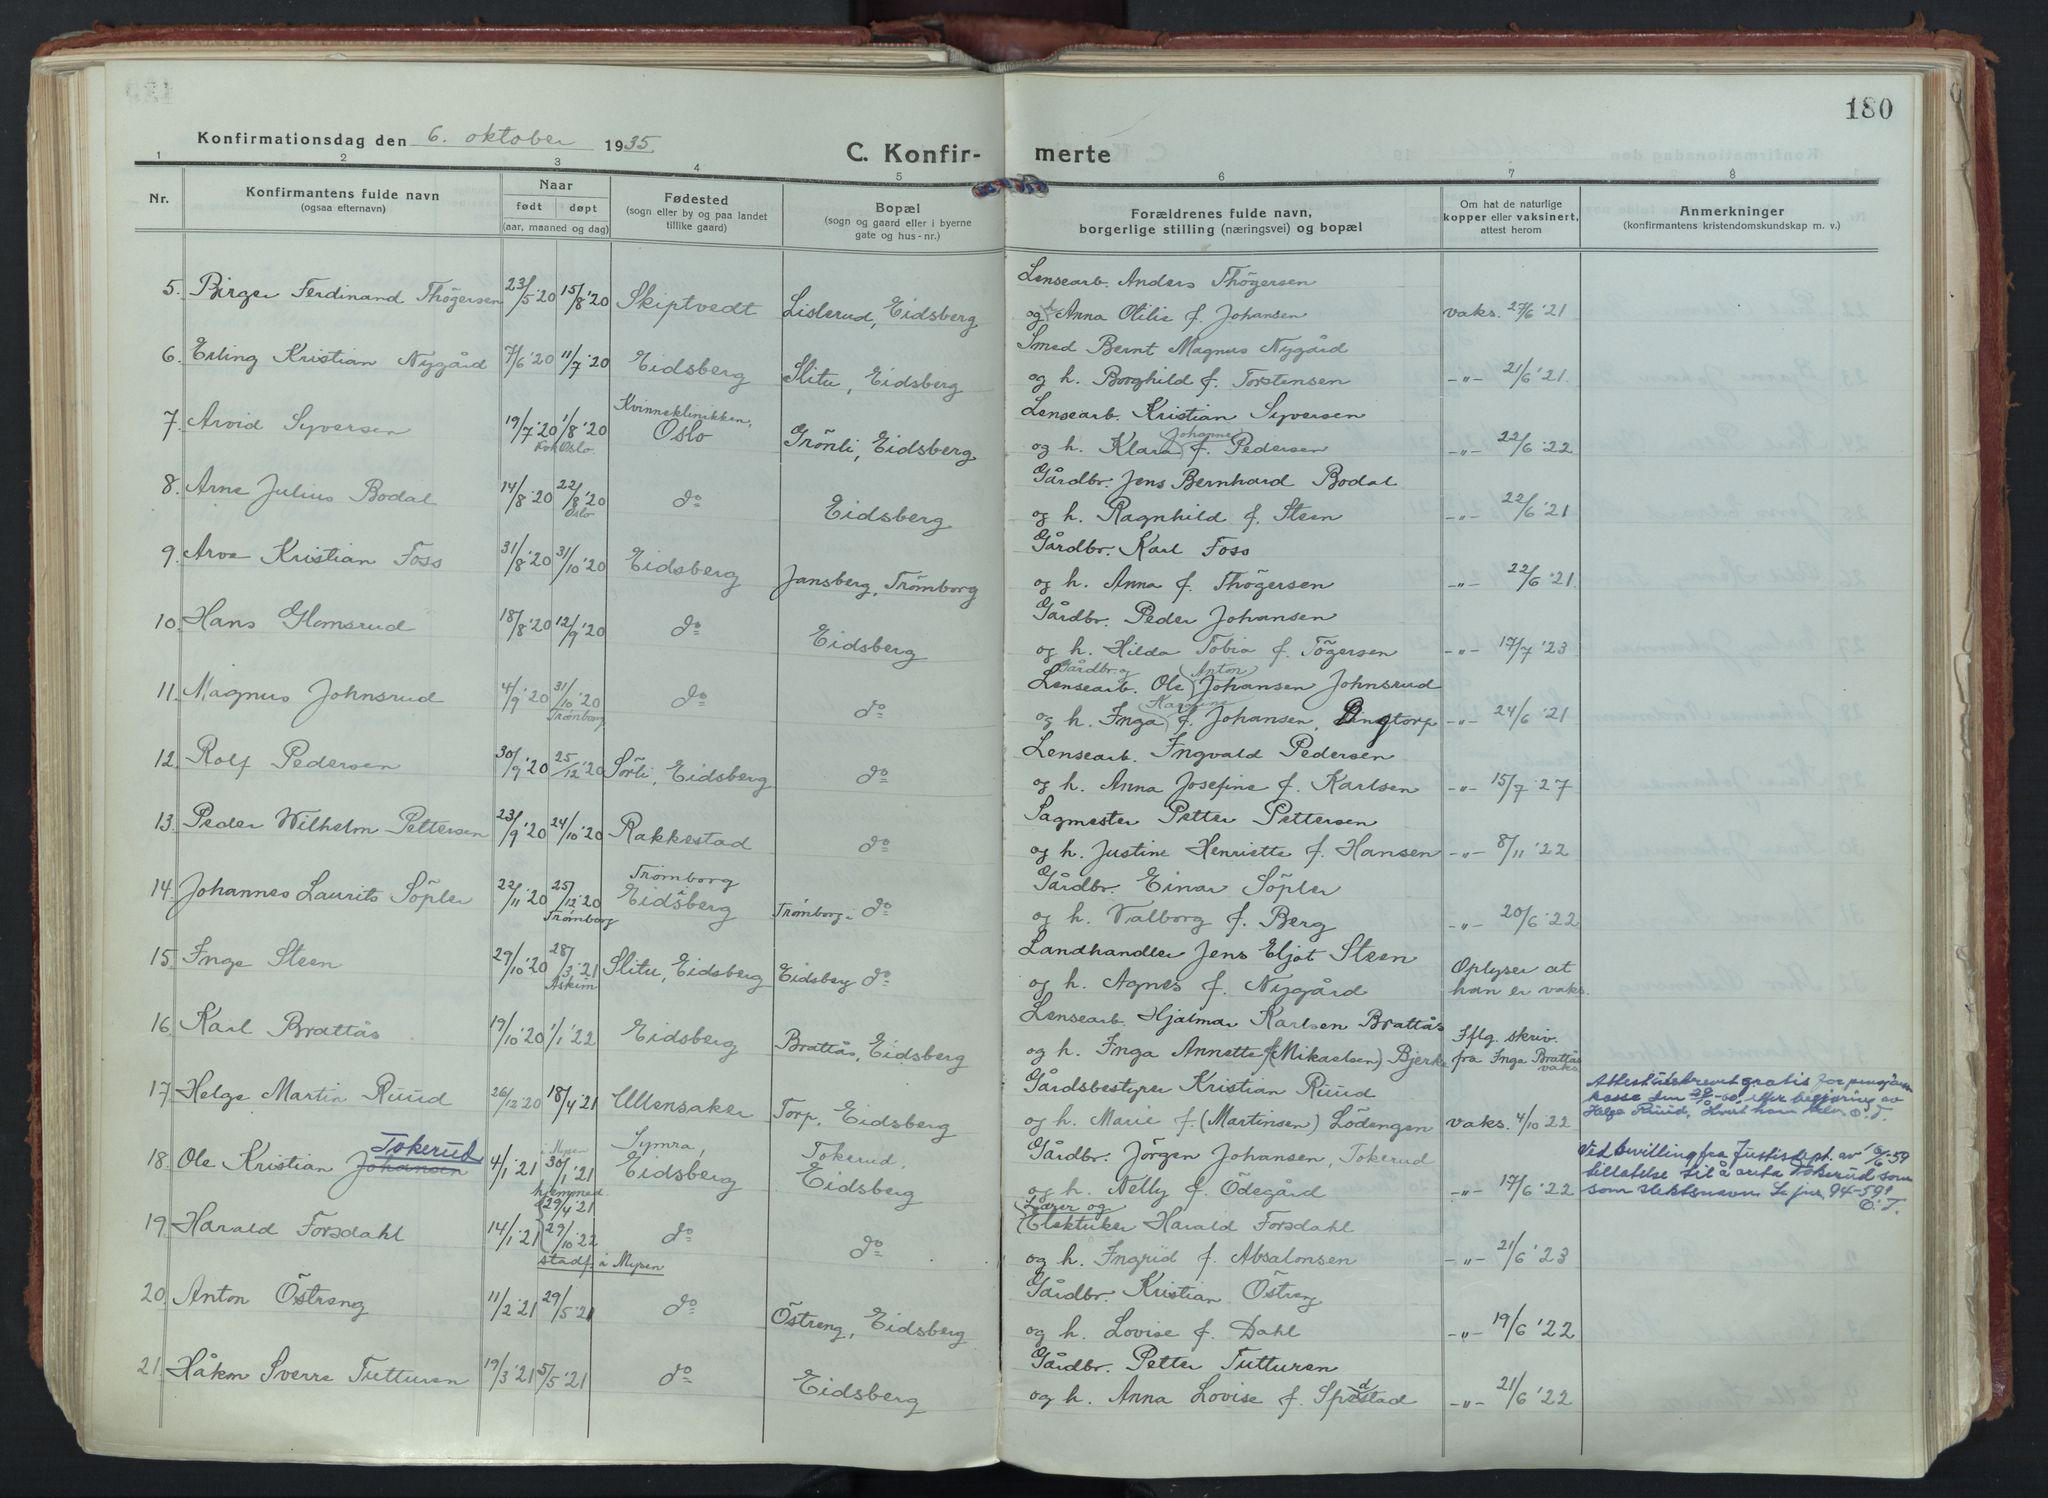 180
Konfirmationsdag den 6. oktober 1935.
C. Konfir- merte
1 2 3 4 5 6 7 8
Nr.
Konfirmantens fulde navn
(ogsaa efternavn)
Naar
født døpt
(aar, maaned og dag)
Fødested
(sogn eller by og paa landet
tillike gaard)
Bopæl
(sogn og gaard eller i byerne
gate og hus-nr.)
Forældrenes fulde navn,
borgerlige stilling (næringsvei) og bopæl
Om hat de naturlige
kopper eller vaksinert,
attest herom
Anmerkninger
(konfirmantens kristendomskundskap m. v.)
Lensearb. Anders Thögersen
5. Birger Ferdinand Thögersen 23/5 '20 15/8 '20 Skiptvedt Lislerud, Eidsberg og h. Anna Otilie f. Johansen vaks. 27/6 '21
Smed Bernt Magnus Nygård
6. Erling Kristian Nygård 7/6 '20 11/7 '20 Eidsberg Slitu, Eidsberg og h. Borghild f. Torstensen -"- 21/6 '21.
Kvinneklinikken, Lensearb. Kristian Syversen
7. Arvid Syversen 19/7 '20 1/8 '20 Oslo Grönli, Eidsberg og h. Klara Johanne f. Pedersen -"- 22/6 '22
Oslo.
Gårdbr. Jens Bernhard Bodal
8. Arne Julius Bodal 14/8 '20 22/8 '20 do Eidsberg og h. Ragnhild f. Steen -"- 22/6 '21
Oslo
Gårdbr. Karl Foss
9. Arve Kristian Foss 31/8 '20 31/10 '20 Eidsberg Jansberg, Trömborg og h. Anna f. Thögersen -"- 22/6 '21.
Gårdbr. Peder Johansen
10. Hans Glomsrud 18/8 '20 12/9 '20 do Eidsberg og h. Hilda Tobia f. Tögersen -"- 17/7 '23
Gårdbr. og Anton
Lensearb. Ole Johansen Johnsrud
11. Magnus Johnsrud 4/9 '20 31/10 '20 do do og h. Inga f. Johansen, Lingtorp -"- 24/6 '21
Trömborg
Lensearb. Ingvald Pedersen
12. Rolf Pedersen 30/9 '20 25/12 '20 Sörli, Eidsberg do og h. Anna Josefine f. Karlsen -"- 15/7 '27
Sagmester Petter Pettersen
13. Peder Wilhelm Pettersen 23/9 '20 24/10 '20 Rakkestad do og h. Justine Henriette f. Hansen -"- 8/11 '22
Trömborg i Gårdbr. Einar Söpler
14. Johannes Laurits Söpler 22/11 '20 25/12 '20 Eidsberg Trömborg i do og h. Valborg f. Berg -"- 20/6 '22
Trömborg
Landhandler Jens Eljot Steen
15. Inge Steen 29/10 '20 28/3 '21 Slitu, Eidsberg Eidsberg do og h. Agnes f. Nygård Oplyser at
Askim han er vaks.
Lensearb. Hjalmar Karlsen Brattås
16. Karl Brattås 19/10 '20 1/1 '22 Eidsberg Brattås, Eidsberg og h. Inga Annette f. (Mikaelsen) Bjerke Iflg. skriv.
fra Inga Brattås
vaks.
Gårdsbestyrer Kristian Ruud
17. Helge Martin Ruud 26/12 '20 18/4 '21 Ullensaker Torp, Eidsberg og h. Marie f. (Martinsen) Lödengen vaks. 4/10 '22
Attest utskrevet gratis for pensjons
kasse den
Helge Ruud, O. T.
Tokerud i Mysen Symra, Tokerud, Gårdbr. Jörgen Johansen, Tokerud
18. Ole Kristian Johansen 4/1 '21 30/1 '21 Eidsberg Eidsberg og h. Nelly f. Ödegård -"- 17/6 '22
Ved bevilling fra Justisdept. av 10/6-59
tillatelse til å anta Tokerud som
som slektsnavn. Se jnr. 94-591
O. T.
hjemmed. Lærer og
29/4 '21 Elektriker Harald Forsdahl
19. Harald Forsdahl 14/1 '21 29/10 '22 do do og h. Ingrid f. Absalonsen -"- 21/6 '23
stadf. i Mysen
Gårdbr. Kristian Östreng
20. Anton Östreng 11/2 '21 29/5 '21 do Östreng, Eidsberg og h. Lovise f. Dahl -"- 19/6 '22
Gårdbr. Petter Tutturen
21. Håkon Sverre Tutturen 19/3 '21 5/5 '21 do Eidsberg og h. Anna Lovise f. Spydstad -"- 21/6 '22